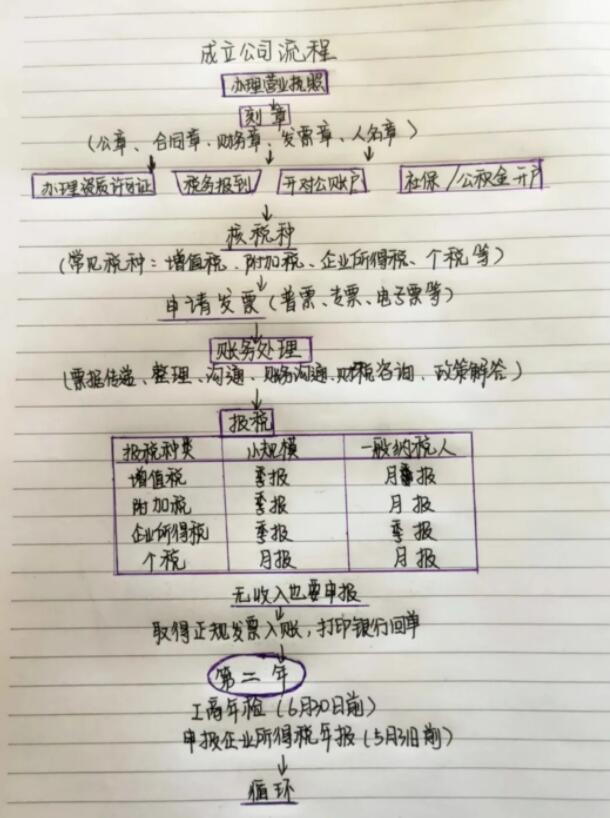 成立公司流程
办理营业执照
刻章
(公章、合同章、财务章、发票章、人名章)
办理资质许可证 税务报到 开对公账户 社保/公积金开户
核税种
(常见税种:增值税、附加税、企业所得税、个税等)
申请发票(普票、专票、电子票等)
账务处理
(票据传递、整理、沟通、账务沟通、财税咨询、政策解答)
报税
报税种类 小规模 一般纳税人
增值税 季报 月报
附加税 季报 月报
企业所得税 季报 季报
个税 月报 月报
无收入也要申报
取得正规发票入账,打印银行回单
第二年
工商年检(6月30日前)
申报企业所得税年报(5月31日前)
循环